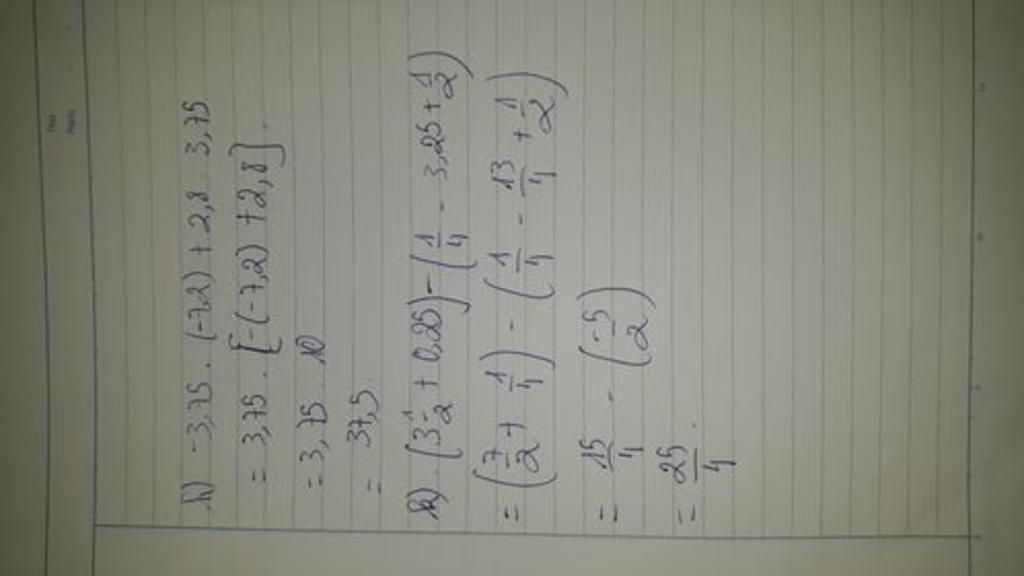 h) -3,75 . (-7,2) + 2,8 . 3,75
= 3,75 . [-(-7,2) + 2,8]
= 3,75 . 10
= 37,5
k) (3 1/2 + 0,25) - (1/4 - 3,25 + 1/2)
= (7/2 + 1/4) - (1/4 - 13/4 + 1/2)
= 15/4 - (-5/2)
= 25/4 .